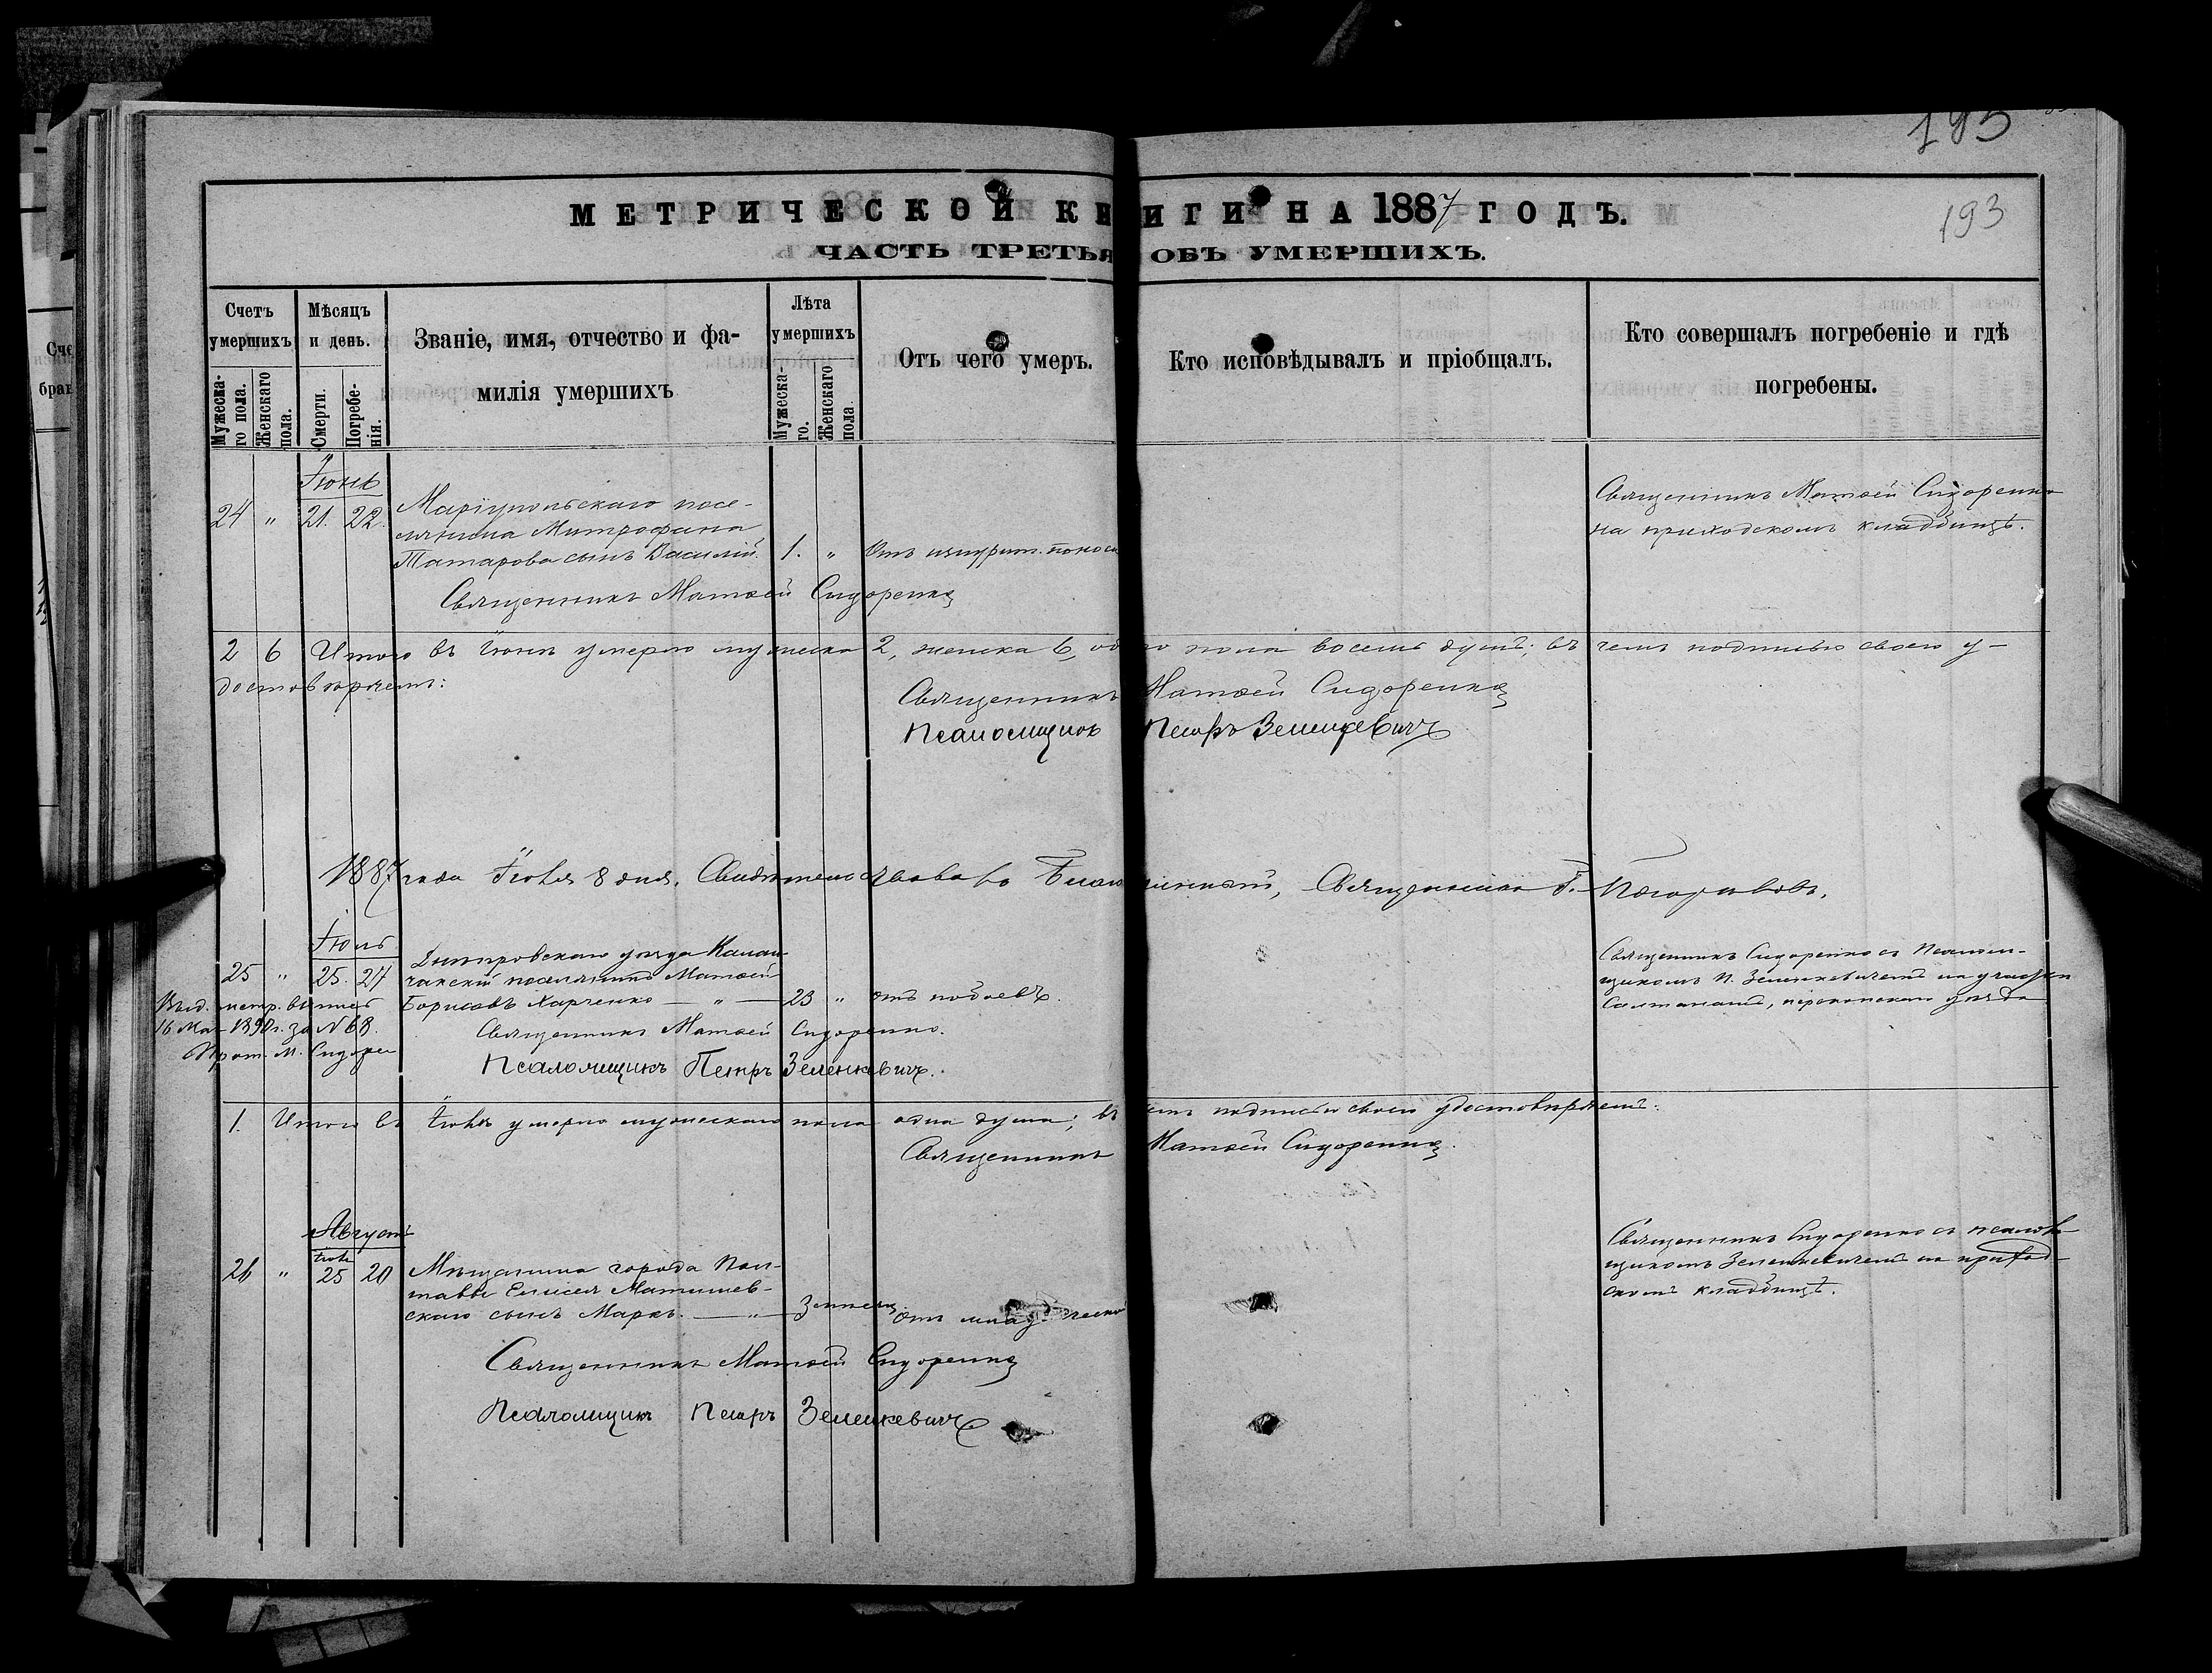 193
МЕТРИЧЕСКОЙ КНИГИ НА 1887 ГОДЪ.
193
ЧАСТЬ ТРЕТЬЯ ОБЪ УМЕРШИХЪ.
Счетъ умершихъ
Мужеска-го пола.
Женскаго пола.
Мѣсяцъ и день.
Смерти.
Погребе-нія.
Званіе, имя, отчество и фа-
милія умершихъ
Лѣта умершихъ
Мужеска-го.
Женскаго пола
Отъ чего умеръ.
Кто исповѣдывалъ и пріобщалъ.
Кто совершалъ погребеніе и гдѣ
погребены.
Іюнь
24 " 21. 22.
Маріупольскаго посе-
лянина Митрофана
Татарова сынъ Василій. 1. " Отъ изнурит. поноса
Священникъ Матѳей Сидоренко
на приходскомъ кладбищѣ.
Священникъ Матѳей Сидоренко
2 6 Итого въ Іюнѣ умерло мужеска 2, женска 6, обоего пола восемь душъ; въ чемъ подписью своею у-
достовѣряемъ:
Священникъ Матѳей Сидоренко
Псаломщикъ Петръ Зеленкевичъ
1887 года Іюля 8 дня. Свидѣтельствовалъ Благочинный, Священникъ
Іюль
25 " 25. 24
Днѣпровскаго уѣзда Калан-
чакскій поселянинъ Матѳей
Борисовъ Харченко — " — 23 " отъ побоевъ.
Священникъ Сидоренко съ Псалом-
щикомъ П. Зеленкевичемъ на участкѣ
перекопскаго уѣзда
Выд. метр. выпись
16 Мая 189 г. за № 68.
Прот. М. Сидорен
Священникъ Матѳей Сидоренко.
Псаломщикъ Петръ Зеленкевичъ.
1. Итого въ Іюлѣ умерло мужескаго пола одна душа; въ чемъ подписью своею удостовѣряемъ:
Священникъ Матѳей Сидоренко.
Августъ
26 " 25 20
Мѣщанина города Пол-
тавы Елисея Матушев-
скаго сынъ Маркъ. — " — 3 отъ
Священникъ Сидоренко съ псалом-
щикомъ Зеленкевичемъ на приход-
скомъ кладбищѣ.
Священникъ Матѳей Сидоренко
Псаломщикъ Петръ Зеленкевичъ